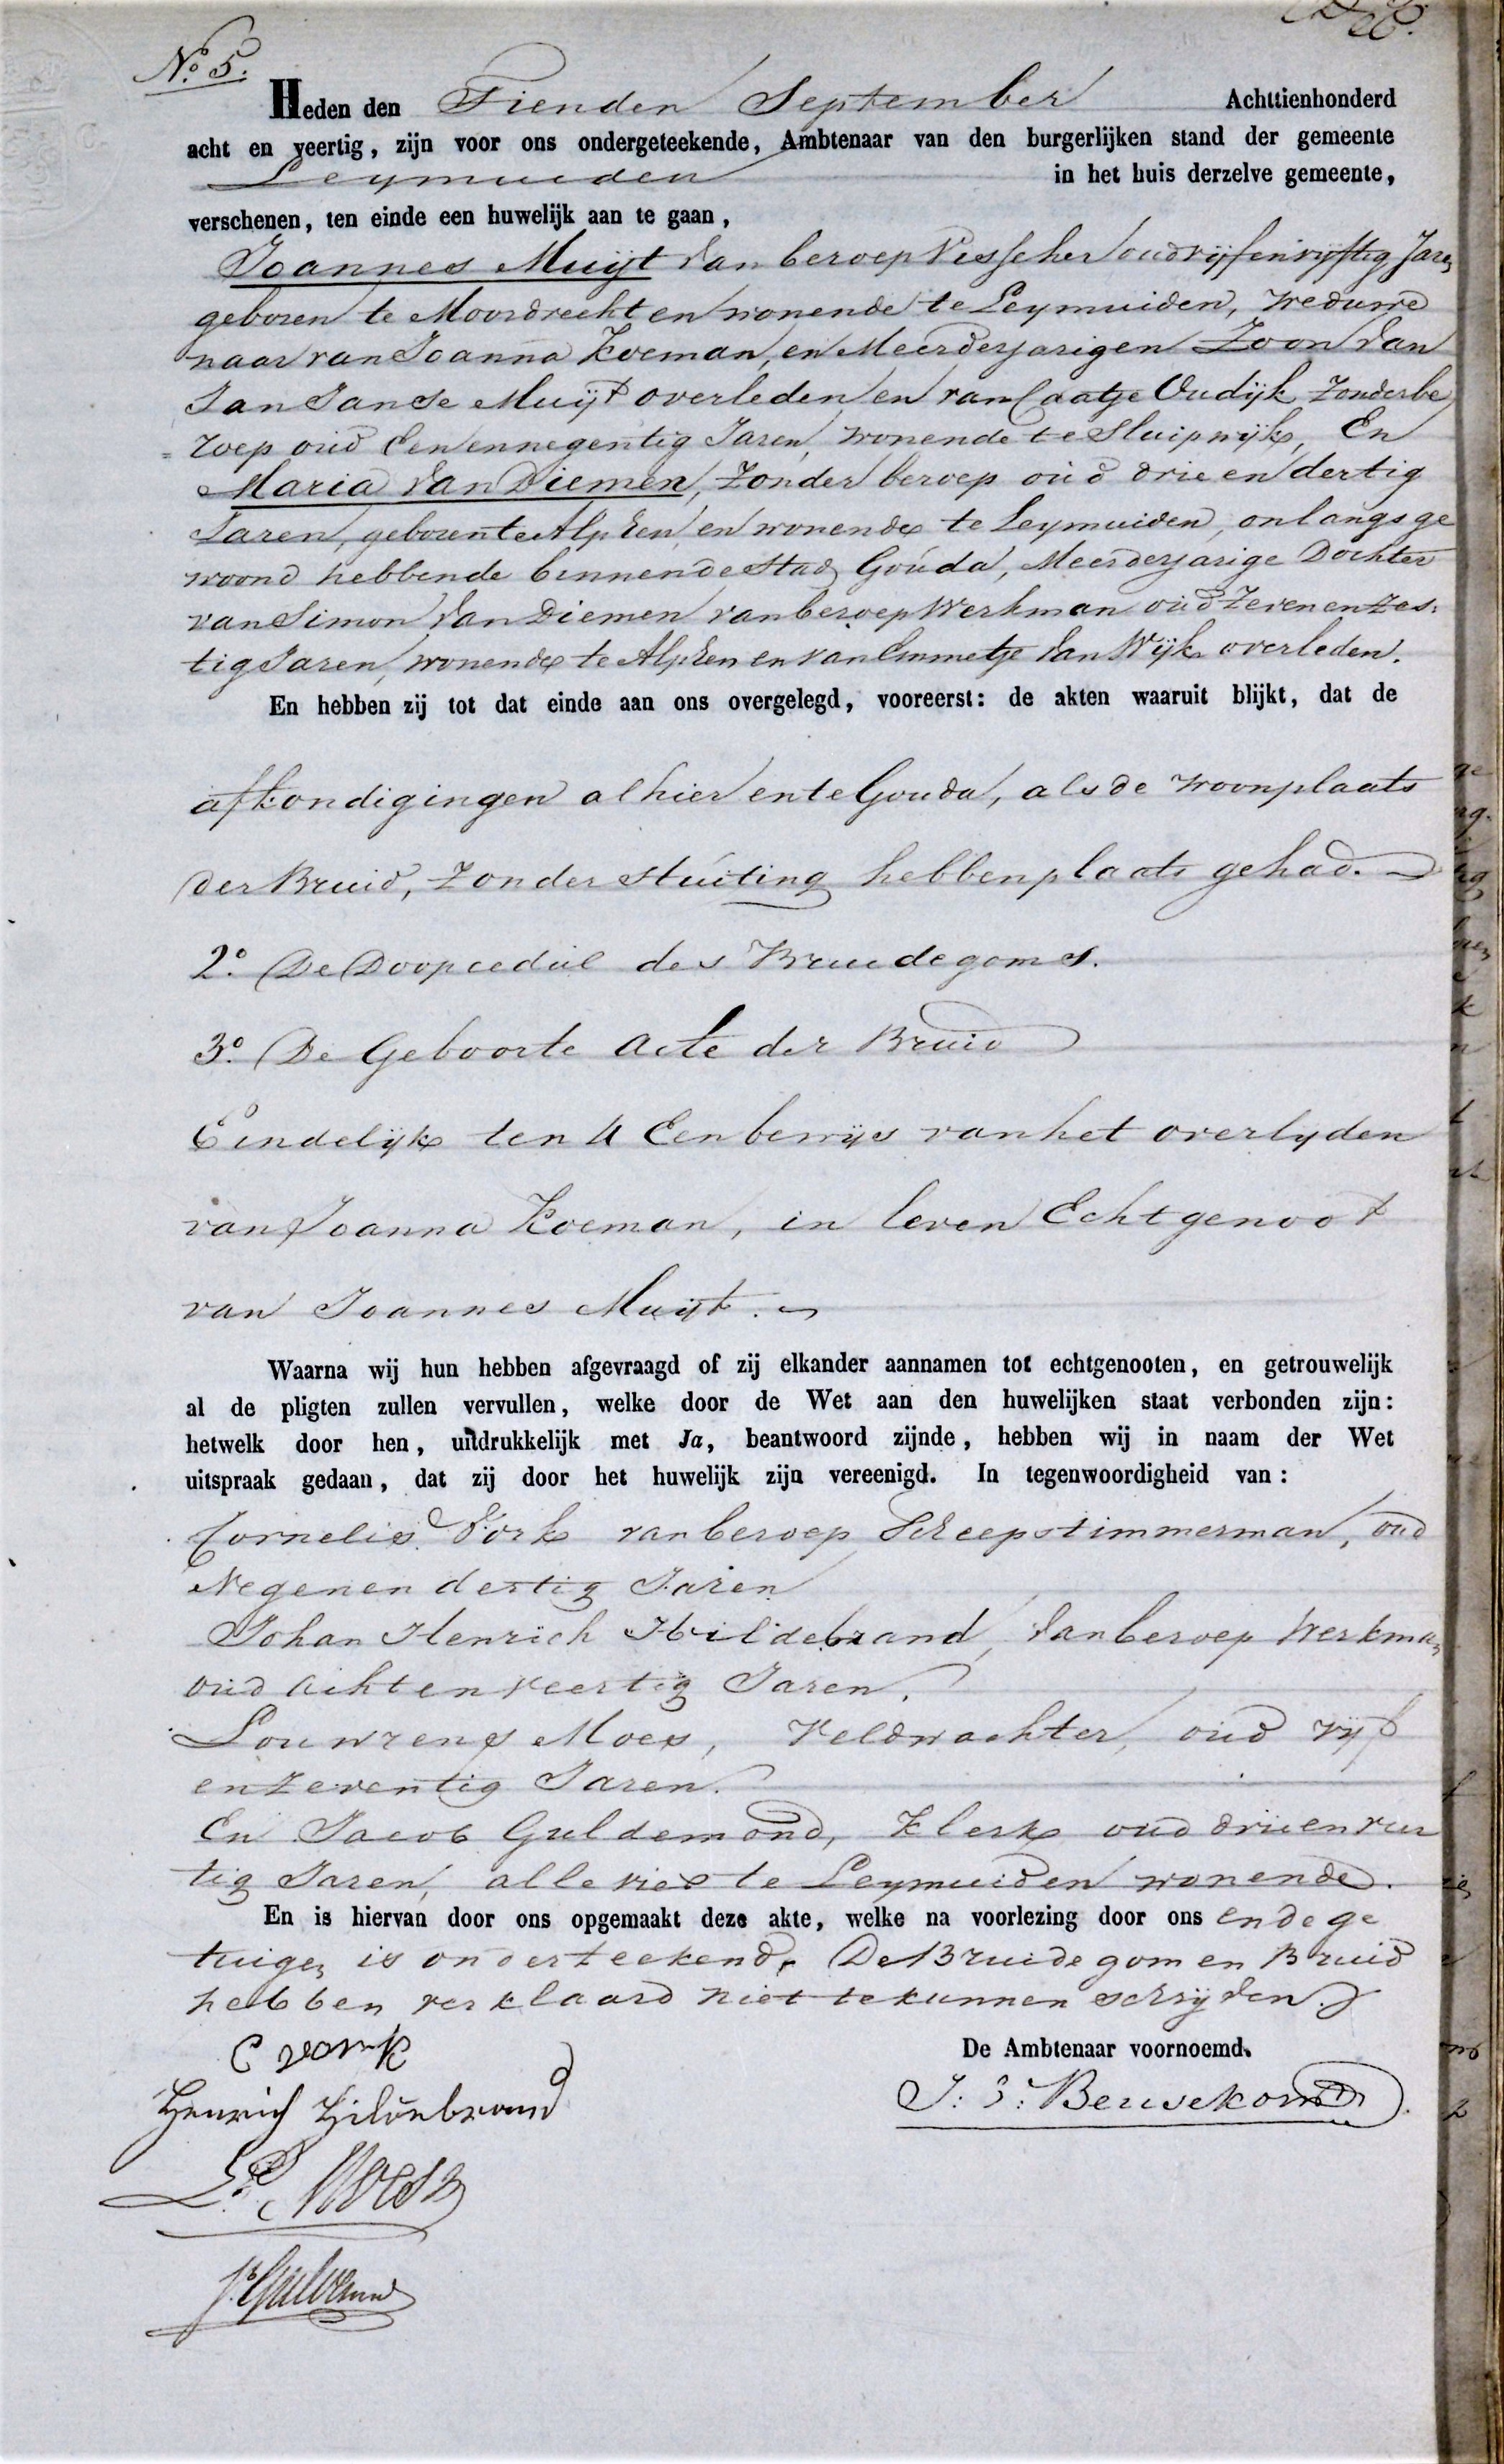 No 5.
Heden den Tienden September Achttienhonderd
acht en veertig, zijn voor ons ondergeteekende, Ambtenaar van den burgerlijken stand der gemeente
Leymuiden in het huis derzelve gemeente,
verschenen, ten einde een huwelijk aan te gaan,
Joannes Muijt van beroep Visscher oud vijfenvijftig Jaren
geboren te Moordrecht en wonende te Leymuiden, weduwe
naar van Joanna Koeman, en Meerderjarigen Zoon van
Jan Janse Muijt overleden en van Caatje Oudijk Zonder be
roep oud Eenennegentig Jaren, wonende te Sluipwijk, En
Maria van Diemen, Zonder beroep oud drie en dertig
Jaren, geboren te Alphen, en wonende te Leymuiden, onlangs ge
woond hebbende binnen de Stad Gouda, Meerderjarige Dochter
van Simon van Diemen van beroep Werkman oud Zeven en Zes-
tig Jaren, wonende te Alphen en van Emmetje van Wijk overleden.
En hebben zij tot dat einde aan ons overgelegd, vooreerst: de akten waaruit blijkt, dat de
afkondigingen alhier en te Gouda, als de woonplaats
der Bruid, zonder stuiting hebben plaats gehad.
2o. De Doopcedul des Bruidegoms.
3o. De Geboorte Acte der Bruid
Eindelijk ten 4 Een bewijs van het overlyden
van Joanna Koeman, in leven Echtgenoot
van Joannes Muijt.
Waarna wij hun hebben afgevraagd of zij elkander aannamen tot echtgenooten, en getrouwelijk
al de pligten zullen vervullen, welke door de Wet aan den huwelijken staat verbonden zijn:
hetwelk door hen, uitdrukkelijk met Ja, beantwoord zijnde, hebben wij in naam der Wet
uitspraak gedaan, dat zij door het huwelijk zijn vereenigd. In tegenwoordigheid van:
Cornelis Vork van beroep Scheepstimmerman, oud
Negenendertig Jaren
Johan Henrich Hildebrand, van beroep Werkman
oud achtenveertig Jaren.
Louwrens Moes, Veldwachter, oud vijf
en Zeventig Jaren.
En Jacob Guldemond, Klerk oud drieenveer
tig Jaren, alle vier te Leymuiden wonende.
En is hiervan door ons opgemaakt deze akte, welke na voorlezing door ons en de ge
tuigen is onderteekend. De Bruidegom en Bruid
hebben verklaard niet te kunnen schrijven.
De Ambtenaar voornoemd.
C vork
Henrich Hildebrand
J. Beusekom
L. Moes
J. Guldemond